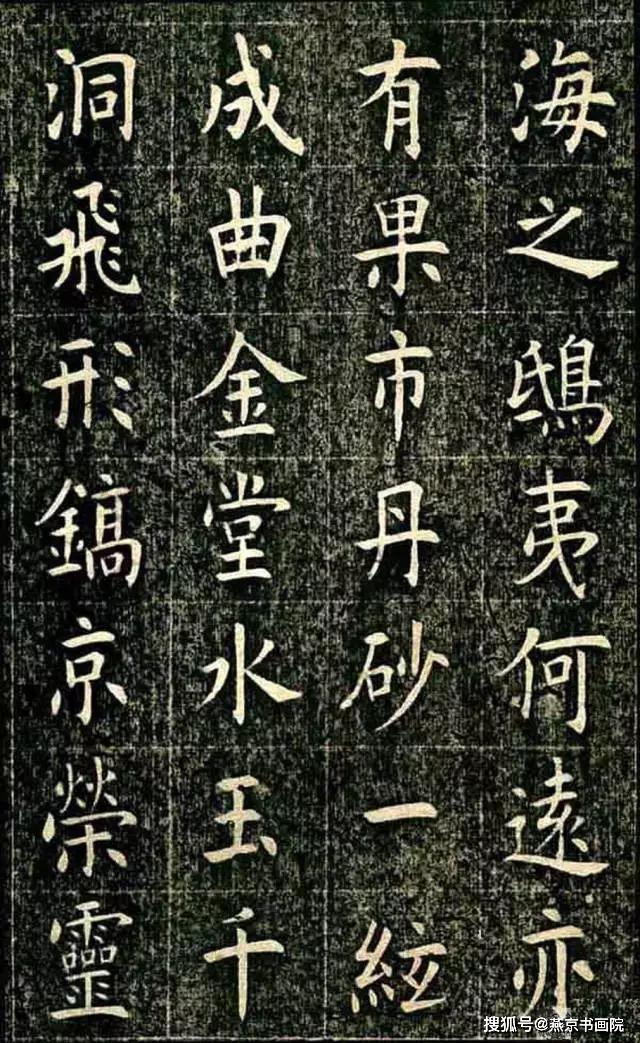 海之鴟夷何遠亦
有果市丹砂一絃
成曲金堂水玉千
洞飛形鎬京榮靈
搜狐号@燕京书画院